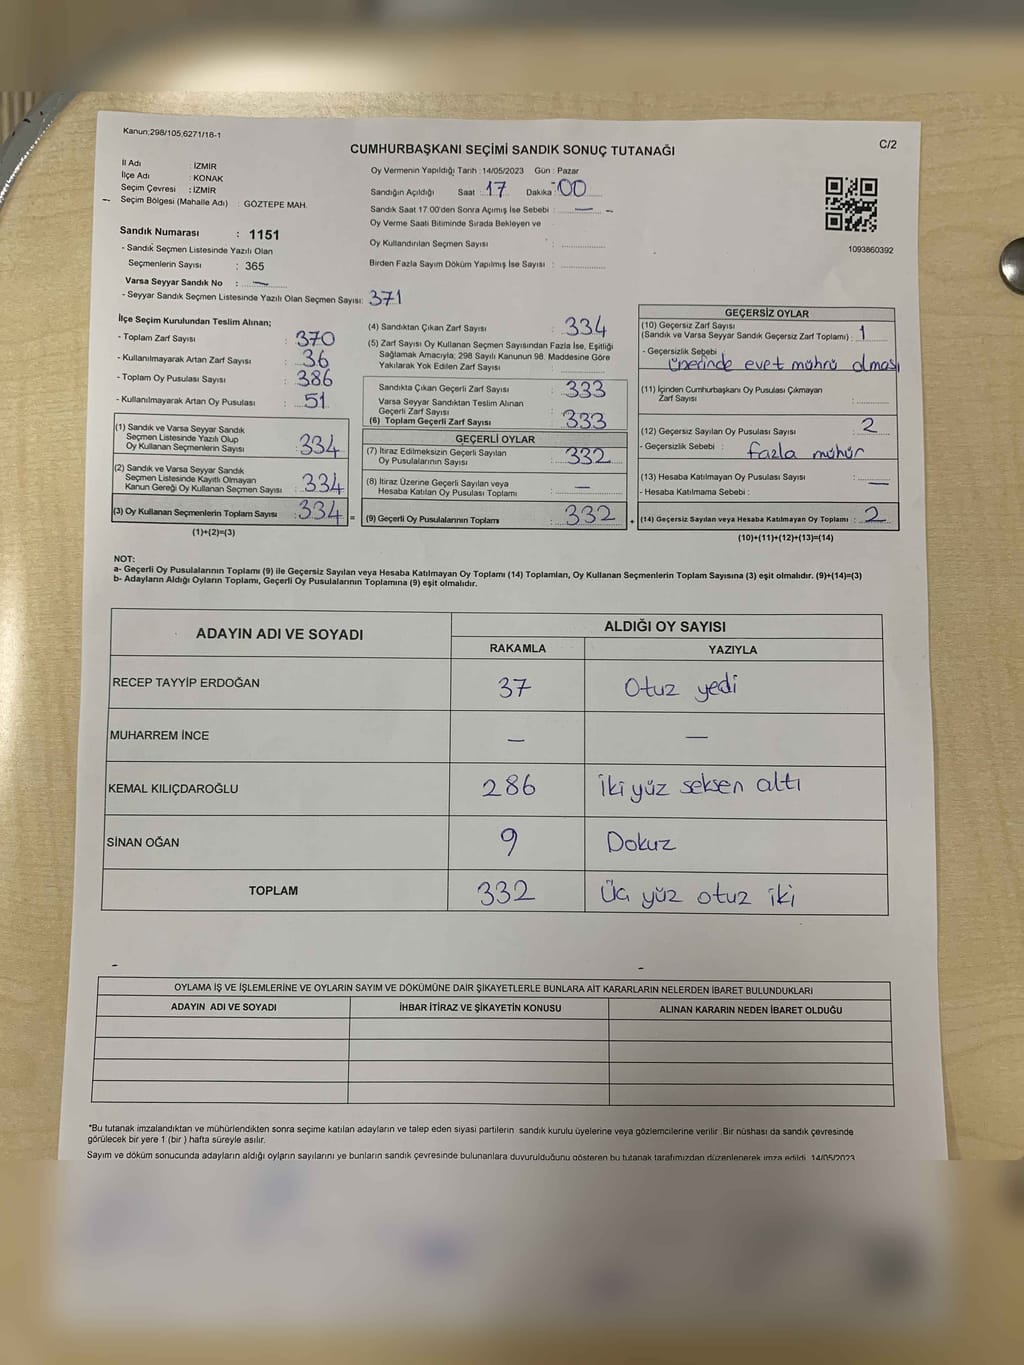 Kanun;298/105,6271/18-1
C/2
CUMHURBAŞKANI SEÇİMİ SANDIK SONUÇ TUTANAĞI
İl Adı : İZMİR
İlçe Adı : KONAK
Seçim Çevresi : İZMİR
Seçim Bölgesi (Mahalle Adı) : GÖZTEPE MAH.
Sandık Numarası : 1151
- Sandık Seçmen Listesinde Yazılı Olan
Seçmenlerin Sayısı : 365
Varsa Seyyar Sandık No : —
- Seyyar Sandık Seçmen Listesinde Yazılı Olan Seçmen Sayısı: 371
Oy Vermenin Yapıldığı Tarih :14/05/2023 Gün : Pazar
Sandığın Açıldığı Saat : 17 Dakika : 00
Sandık Saat 17.00'den Sonra Açımış İse Sebebi : —
Oy Verme Saati Bitiminde Sırada Bekleyen ve
Oy Kullandırılan Seçmen Sayısı :
Birden Fazla Sayım Döküm Yapılmış İse Sayısı :
1093860392
İlçe Seçim Kurulundan Teslim Alınan;
- Toplam Zarf Sayısı : 370
- Kullanılmayarak Artan Zarf Sayısı : 36
- Toplam Oy Pusulası Sayısı : 386
- Kullanılmayarak Artan Oy Pusulası : 51
(1) Sandık ve Varsa Seyyar Sandık
Seçmen Listesinde Yazılı Olup
Oy Kullanan Seçmenlerin Sayısı : 334
(2) Sandık ve Varsa Seyyar Sandık
Seçmen Listesinde Kayıtlı Olmayan
Kanun Gereği Oy Kullanan Seçmen Sayısı : 334
(3) Oy Kullanan Seçmenlerin Toplam Sayısı : 334 =
(1)+(2)=(3)
(4) Sandıktan Çıkan Zarf Sayısı : 334
(5) Zarf Sayısı Oy Kullanan Seçmen Sayısından Fazla İse, Eşitliği
Sağlamak Amacıyla; 298 Sayılı Kanunun 98. Maddesine Göre
Yakılarak Yok Edilen Zarf Sayısı :
Sandıkta Çıkan Geçerli Zarf Sayısı : 333
Varsa Seyyar Sandıktan Teslim Alınan
Geçerli Zarf Sayısı :
(6) Toplam Geçerli Zarf Sayısı : 333
GEÇERLİ OYLAR
(7) İtiraz Edilmeksizin Geçerli Sayılan
Oy Pusulalarının Sayısı : 332
(8) İtiraz Üzerine Geçerli Sayılan veya
Hesaba Katılan Oy Pusulası Toplamı : —
(9) Geçerli Oy Pusulalarının Toplamı : 332 +
GEÇERSİZ OYLAR
(10) Geçersiz Zarf Sayısı
(Sandık ve Varsa Seyyar Sandık Geçersiz Zarf Toplamı) : 1
- Geçersizlik Sebebi
üzerinde evet mührü olması
(11) İçinden Cumhurbaşkanı Oy Pusulası Çıkmayan
Zarf Sayısı :
(12) Geçersiz Sayılan Oy Pusulası Sayısı : 2
- Geçersizlik Sebebi : fazla mühür
(13) Hesaba Katılmayan Oy Pusulası Sayısı : —
- Hesaba Katılmama Sebebi :
(14) Geçersiz Sayılan veya Hesaba Katılmayan Oy Toplamı : 2
(10)+(11)+(12)+(13)=(14)
NOT:
a- Geçerli Oy Pusulalarının Toplamı (9) ile Geçersiz Sayılan veya Hesaba Katılmayan Oy Toplamı (14) Toplamları, Oy Kullanan Seçmenlerin Toplam Sayısına (3) eşit olmalıdır. (9)+(14)=(3)
b- Adayların Aldığı Oyların Toplamı, Geçerli Oy Pusulalarının Toplamına (9) eşit olmalıdır.
ADAYIN ADI VE SOYADI
ALDIĞI OY SAYISI
RAKAMLA YAZIYLA
RECEP TAYYİP ERDOĞAN 37 Otuz yedi
MUHARREM İNCE — —
KEMAL KILIÇDAROĞLU 286 İki yüz seksen altı
SİNAN OĞAN 9 Dokuz
TOPLAM 332 Üç yüz otuz iki
OYLAMA İŞ VE İŞLEMLERİNE VE OYLARIN SAYIM VE DÖKÜMÜNE DAİR ŞİKAYETLERLE BUNLARA AİT KARARLARIN NELERDEN İBARET BULUNDUKLARI
ADAYIN ADI VE SOYADI İHBAR İTİRAZ VE ŞİKAYETİN KONUSU ALINAN KARARIN NEDEN İBARET OLDUĞU
*Bu tutanak imzalandıktan ve mühürlendikten sonra seçime katılan adayların ve talep eden siyasi partilerin sandık kurulu üyelerine veya gözlemcilerine verilir .Bir nüshası da sandık çevresinde
görülecek bir yere 1 (bir ) hafta süreyle asılır.
Sayım ve döküm sonucunda adayların aldığı oyların sayılarını ve bunların sandık çevresinde bulunanlara duyurulduğunu gösteren bu tutanak tarafımızdan düzenlenerek imza edildi. 14/05/2023